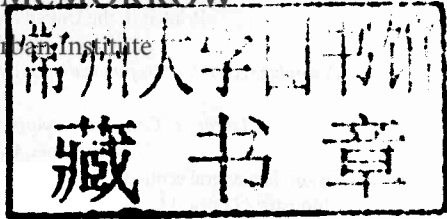 rban Institute
常州大学图书馆
藏书章